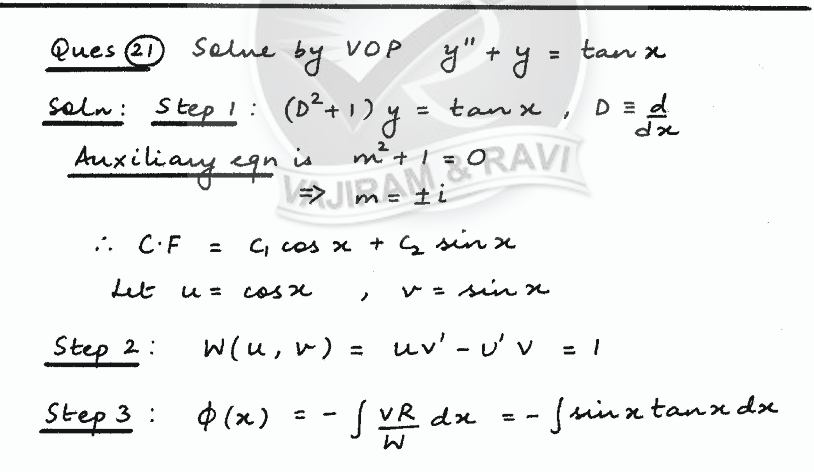 Ques (21) Solve by VOP y'' + y = tan x
Soln: Step 1: (D² + 1) y = tan x, D ≡ d/dx
Auxiliary eqn is m² + 1 = 0
⇒ m = ± i
VAJIRAM & RAVI
∴ C.F = C₁ cos x + C₂ sin x
Let u = cos x, v = sin x
Step 2: W(u, v) = uv' - u'v = 1
Step 3: ϕ(x) = - ∫ vR/W dx = - ∫ sin x tan x dx